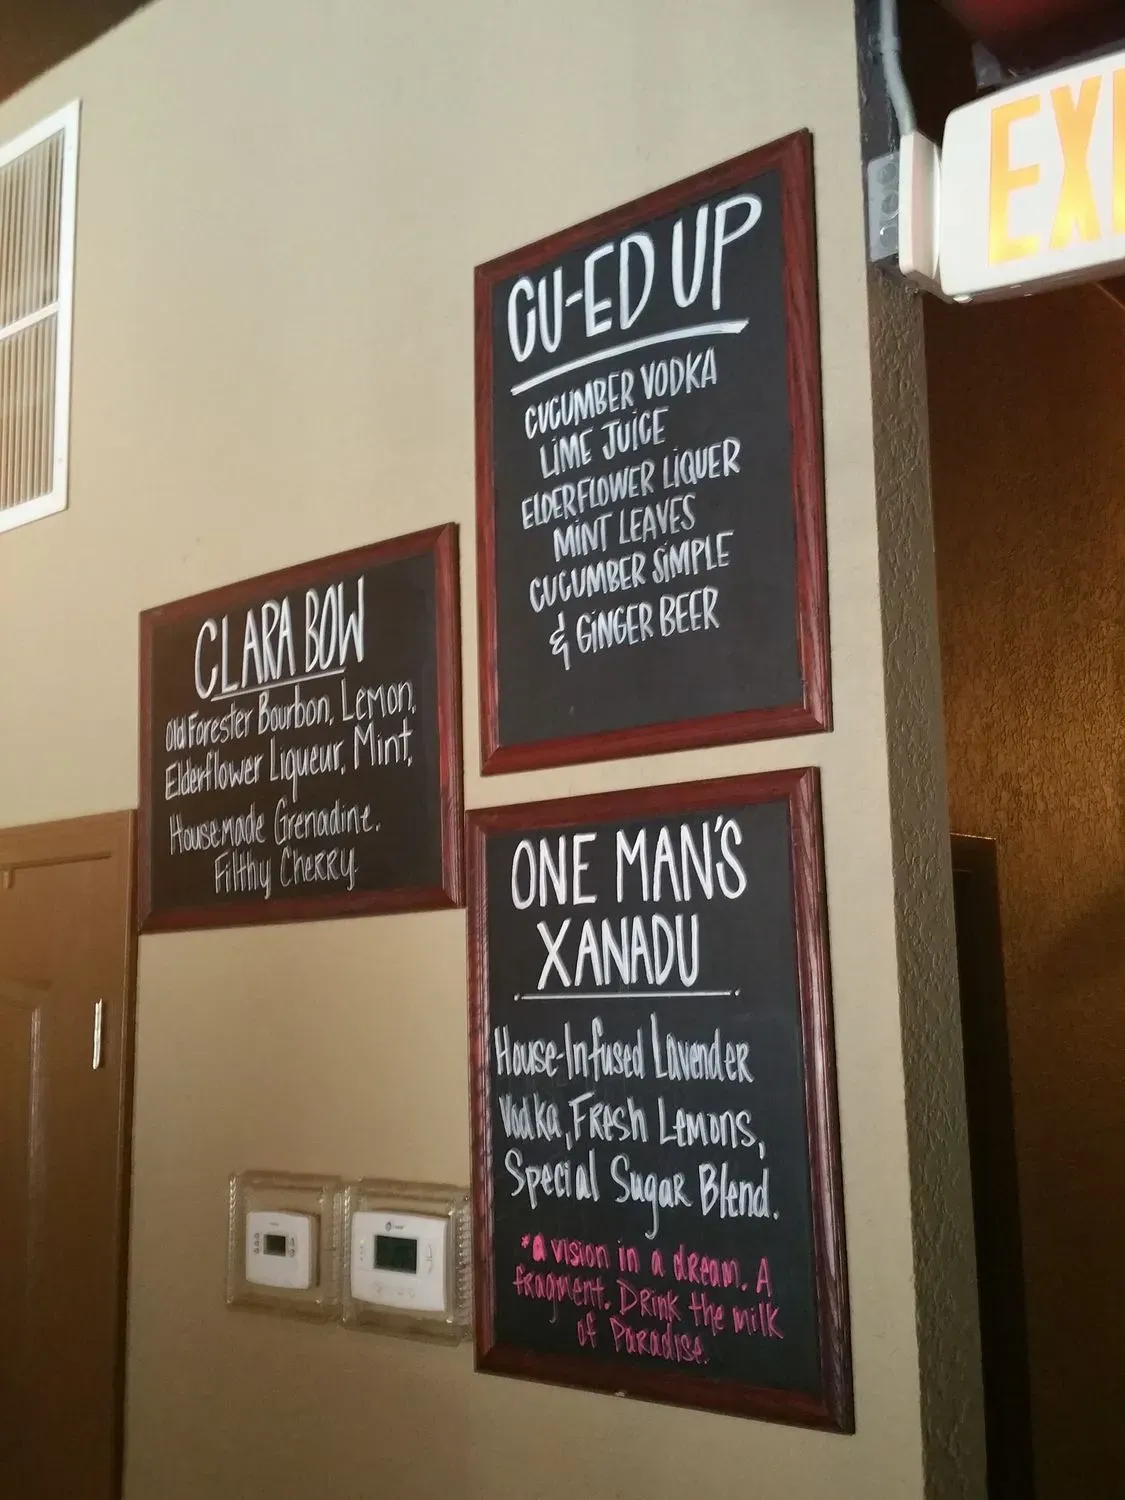 EXI
CU-ED UP
CUCUMBER VODKA
LIME JUICE
ELDERFLOWER LIQUER
MINT LEAVES
CUCUMBER SIMPLE
& GINGER BEER
CLARA BOW
Old Forester Bourbon, Lemon,
Elderflower Liqueur, Mint,
Housemade Grenadine.
Filthy Cherry.
ONE MAN'S
XANADU
House-Infused Lavender
Vodka, Fresh Lemons,
Special Sugar Blend.
*a vision in a dream. A
fragment. Drink the milk
of Paradise.